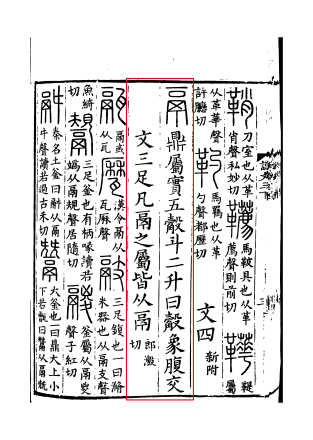 鞘 刀室也从革肖聲私妙切 韉 馬鞁具也从革薦聲則前切 鞾 鞮屬
从革華聲許䏢切 靮 馬羈也从革勺聲都歷切
文四 新附
鬲 鼎屬實五觳斗二升曰觳象腹交
文三足凡鬲之屬皆从鬲 郎激切
䰛 鬲或从瓦 㽁 漢令鬲从瓦厤聲 䰙 三足鍑也一曰滫米器也从鬲支聲
魚綺切 鬹 三足釜也有柄喙讀若嬀从鬲規聲居隨切 鬷 釜屬从鬲㚇聲子紅切
䰛 秦名土釜曰䰛从鬲𠂔聲讀若過古禾切 鬵 大釜也一曰鼎大上小下若甑曰鬵从鬲兓